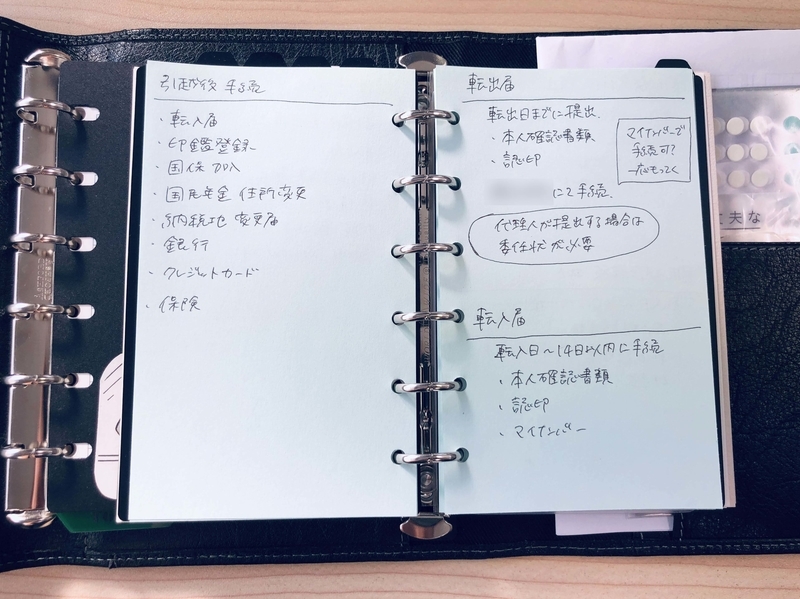 引越後 手続
・転入届
・印鑑登録
・国保 加入
・国民年金 住所変更
・納税地 変更届
・銀行
・クレジットカード
・保険
転出届
転出日までに提出.
・本人確認書類
・認印
マイナンバーで
手続可?
一応もってく
にて手続.
代理人が提出する場合は
委任状が必要
転入届
転入日〜14日以内に手続
・本人確認書類
・認印
・マイナンバー
丈夫な